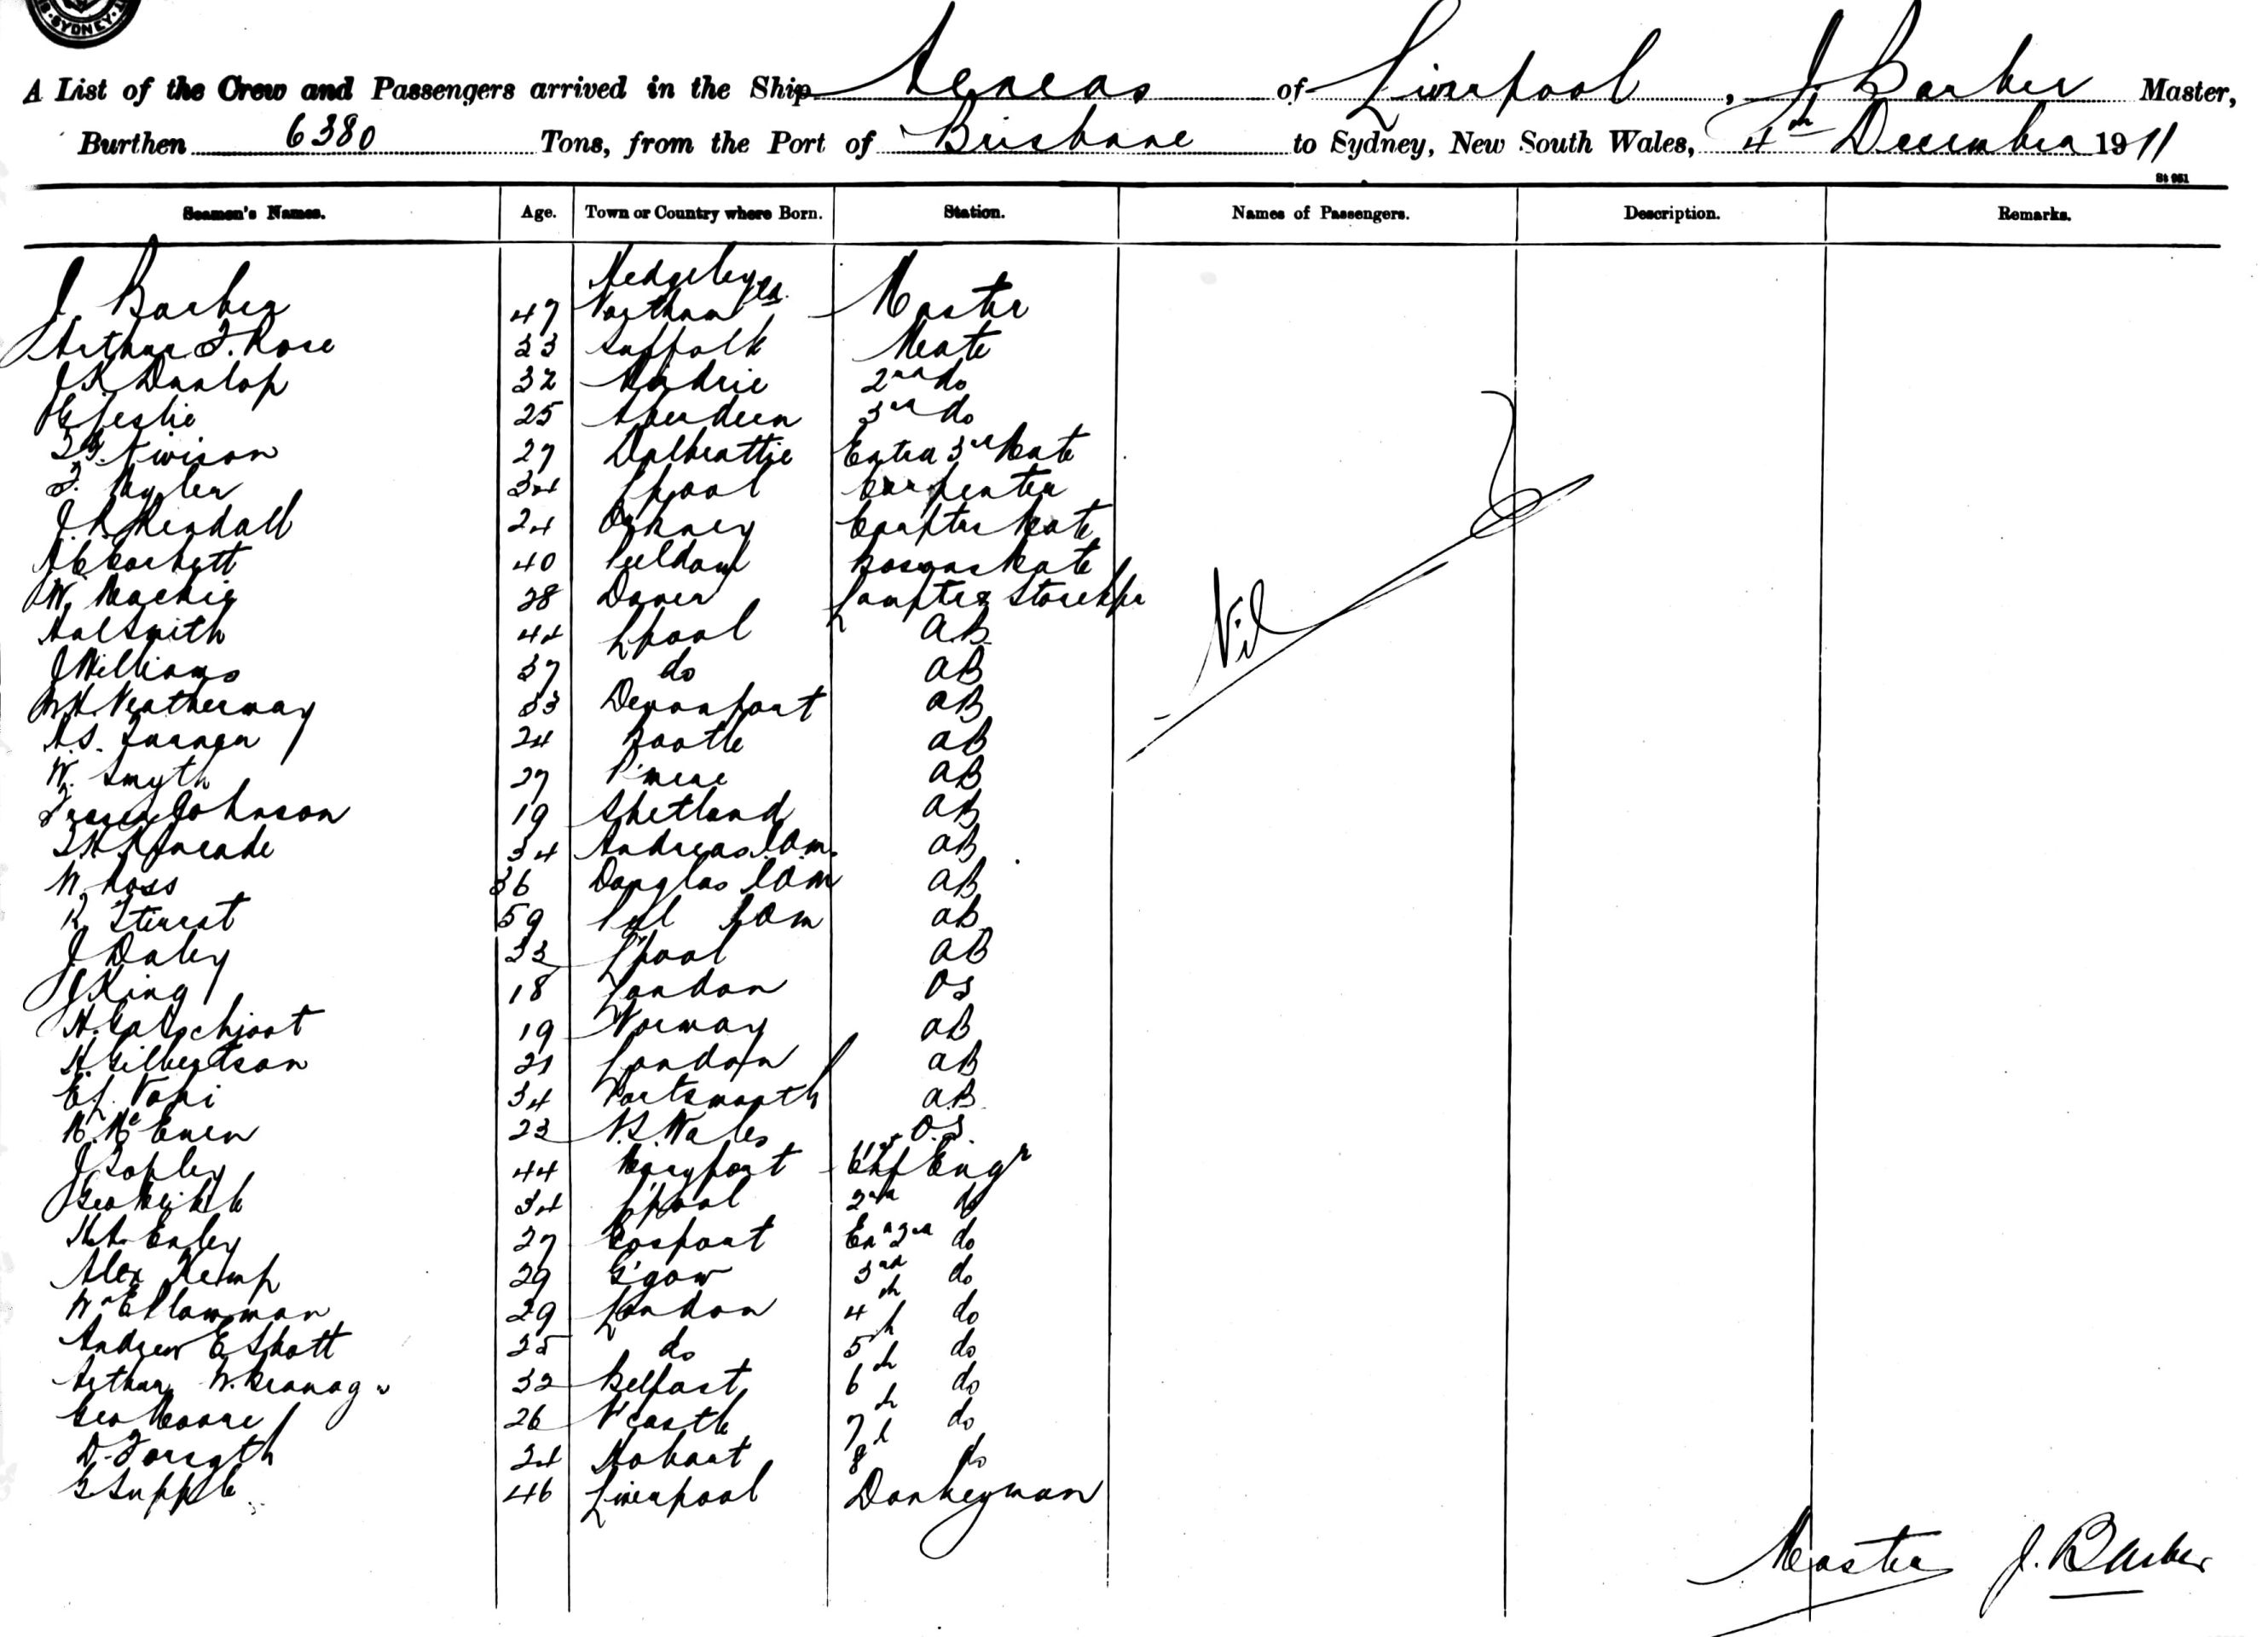 SYDNEY
A List of the Crew and Passengers arrived in the Ship Aeneas of Liverpool, J. Barber Master,
Burthen 6380 Tons, from the Port of Brisbane to Sydney, New South Wales, 4th December 1911
St 951
Seamen's Names. Age. Town or Country where Born. Station. Names of Passengers. Description. Remarks.
Hedgeley
J. Barber 47 Northumbld. Master
Arthur F. Rose 33 Suffolk Mate
J K Dunlop 32 Airdrie 2nd do
G Leslie 25 Aberdeen 3rd do
Niven 27 Dalbeattie Extra 3rd Mate
F. 34 Lpool Carpenter
J. R. Kendall 24 Orkney Carptrs Mate
A E Corbett 40 Bosuns Mate
W. Mackie 38 Dover Lamptr & Storekpr
Hal Smith 44 Lpool AB
J Williams 37 do AB
W H Neatherway 33 Devonport AB
24 Bootle AB
W. Smyth 27 AB
Johnson 19 Shetland AB
Kneade 34 Andreas IOM. AB
W Ross 36 Douglas IOM AB
R 59 Peel IOM AB
J Daley 33 Lpool AB
J King 18 London OS
H. 19 Norway AB
H Gilbertson 21 London AB
34 Portsmouth AB
McEwen 23 N.S. Wales O.S.
J Sopley 44 Maryport Chf Engr
Geo 34 L'pool 2nd do
H A Exley 27 Gosport Ex 2nd do
Alex Kemp 29 G'gow 3rd do
Wm E Plowman 29 London 4th do
Andrew E Shott 25 do 5th do
Arthur W. 32 Belfast 6th do
Geo Moore 26 N'castle 7th do
D. Forsyth 24 Hobart 8th do
G Supple 46 Liverpool Donkeyman
Nil
Master J. Barber